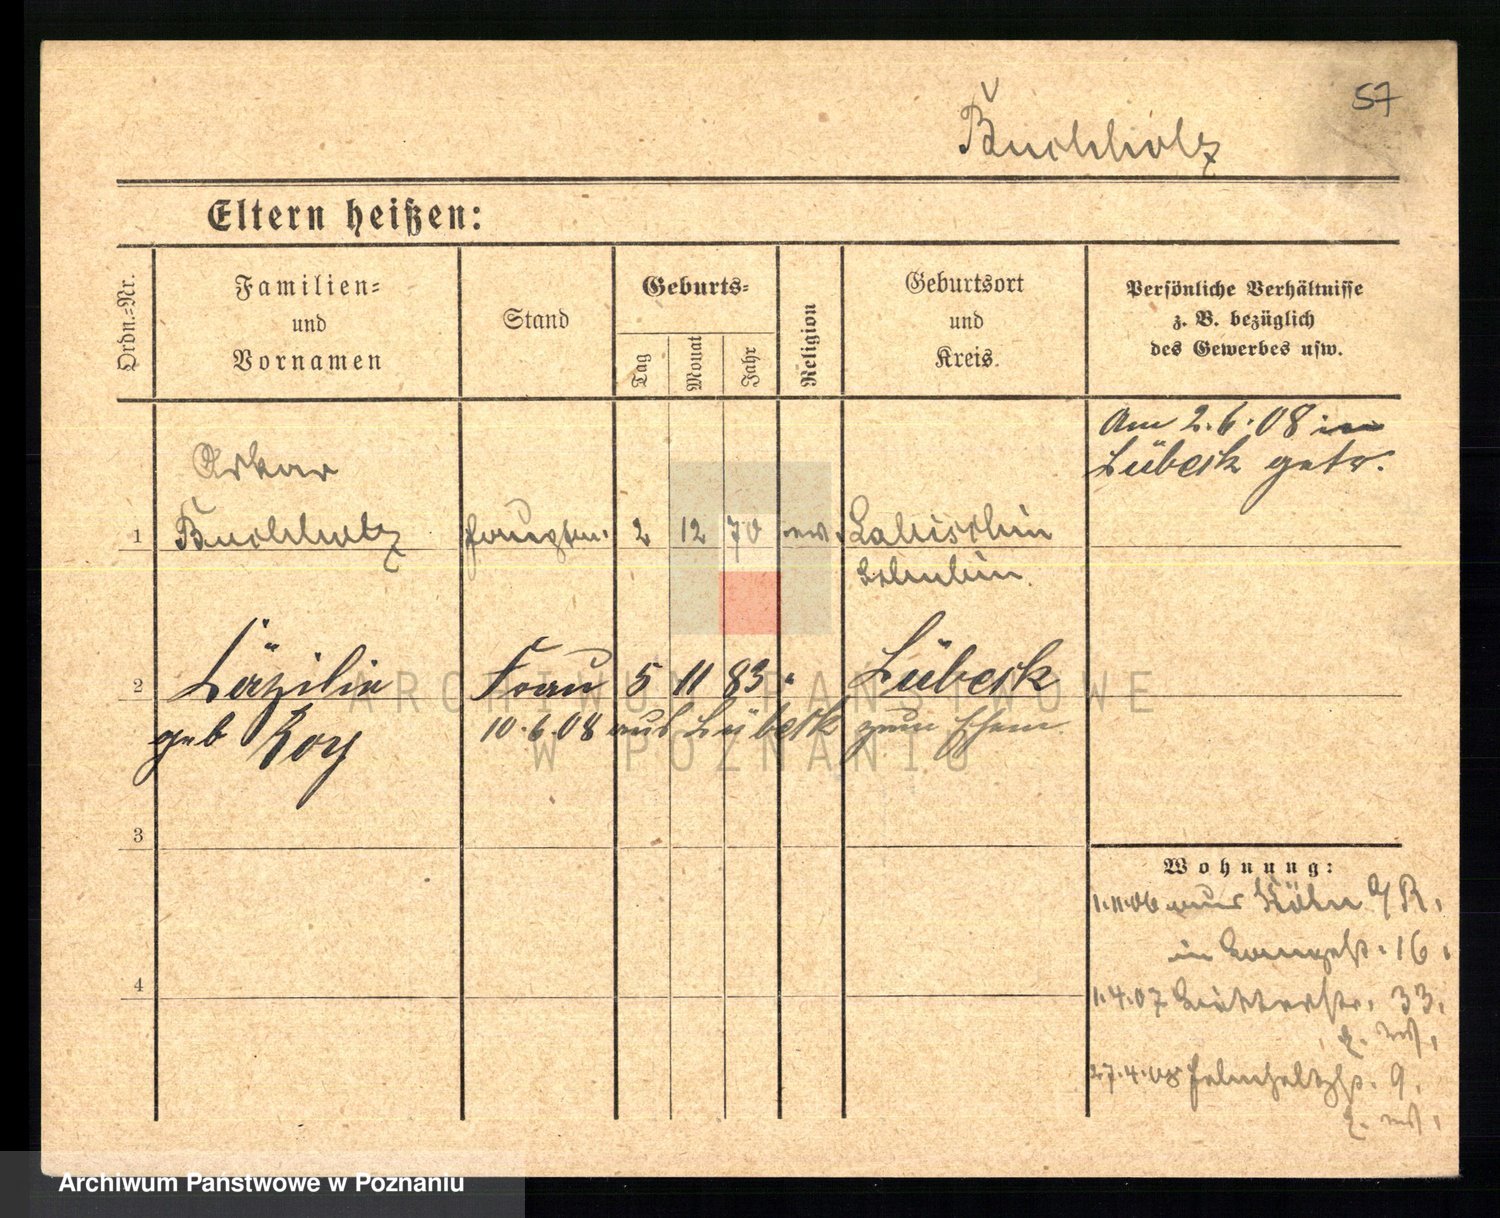 57
Buchholz
Eltern heißen:
Ordn.-Nr.
Familien-
und
Vornamen
Stand
Geburts-
Tag
Monat
Jahr
Religion
Geburtsort
und
Kreis.
Persönliche Verhältnisse
z. B. bezüglich
des Gewerbes usw.
Am 2.6.08 in
Lübeck getr.
Oskar
1 Buchholz 2 12 70 Labischin
Schubin
2 Cäzilie Frau 5 11 83 " Lübeck
geb Roy 10.6.08 aus Lübeck zum Ehem.
3
Wohnung:
1.11.06 aus Köln a/R.
in 16.
4
1.4.07 33.
27.4.08 9.
ARCHIWUM PAŃSTWOWE
W POZNANIU
Archiwum Państwowe w Poznaniu